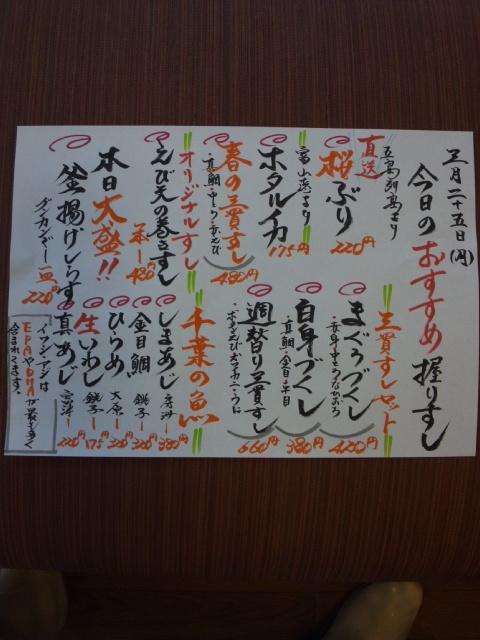 三月二十五日(月)
今日のおすすめ握りずし
五島列島より
直送
桜ぶり
220円
富山湾より
ホタルイカ
175円
春の三貫ずし
真鯛・中とろ・赤えび
480円
オリジナルずし
えび天の巻きずし
一本 480
本日大盛!!
釜揚げしらす
グンカンが一皿
220円
三貫ずしセット
まぐろづくし
420円
白身づくし
真鯛・金目・平目
380円
週替り三貫ずし
660円
千葉の魚
しまあじ
380円
金目鯛
銚子
320円
ひらめ
大原
320円
生いわし
銚子
175円
真あじ
富津
220円
イワシ・アジは
EPAやDHAが最も多く
含まれてます。